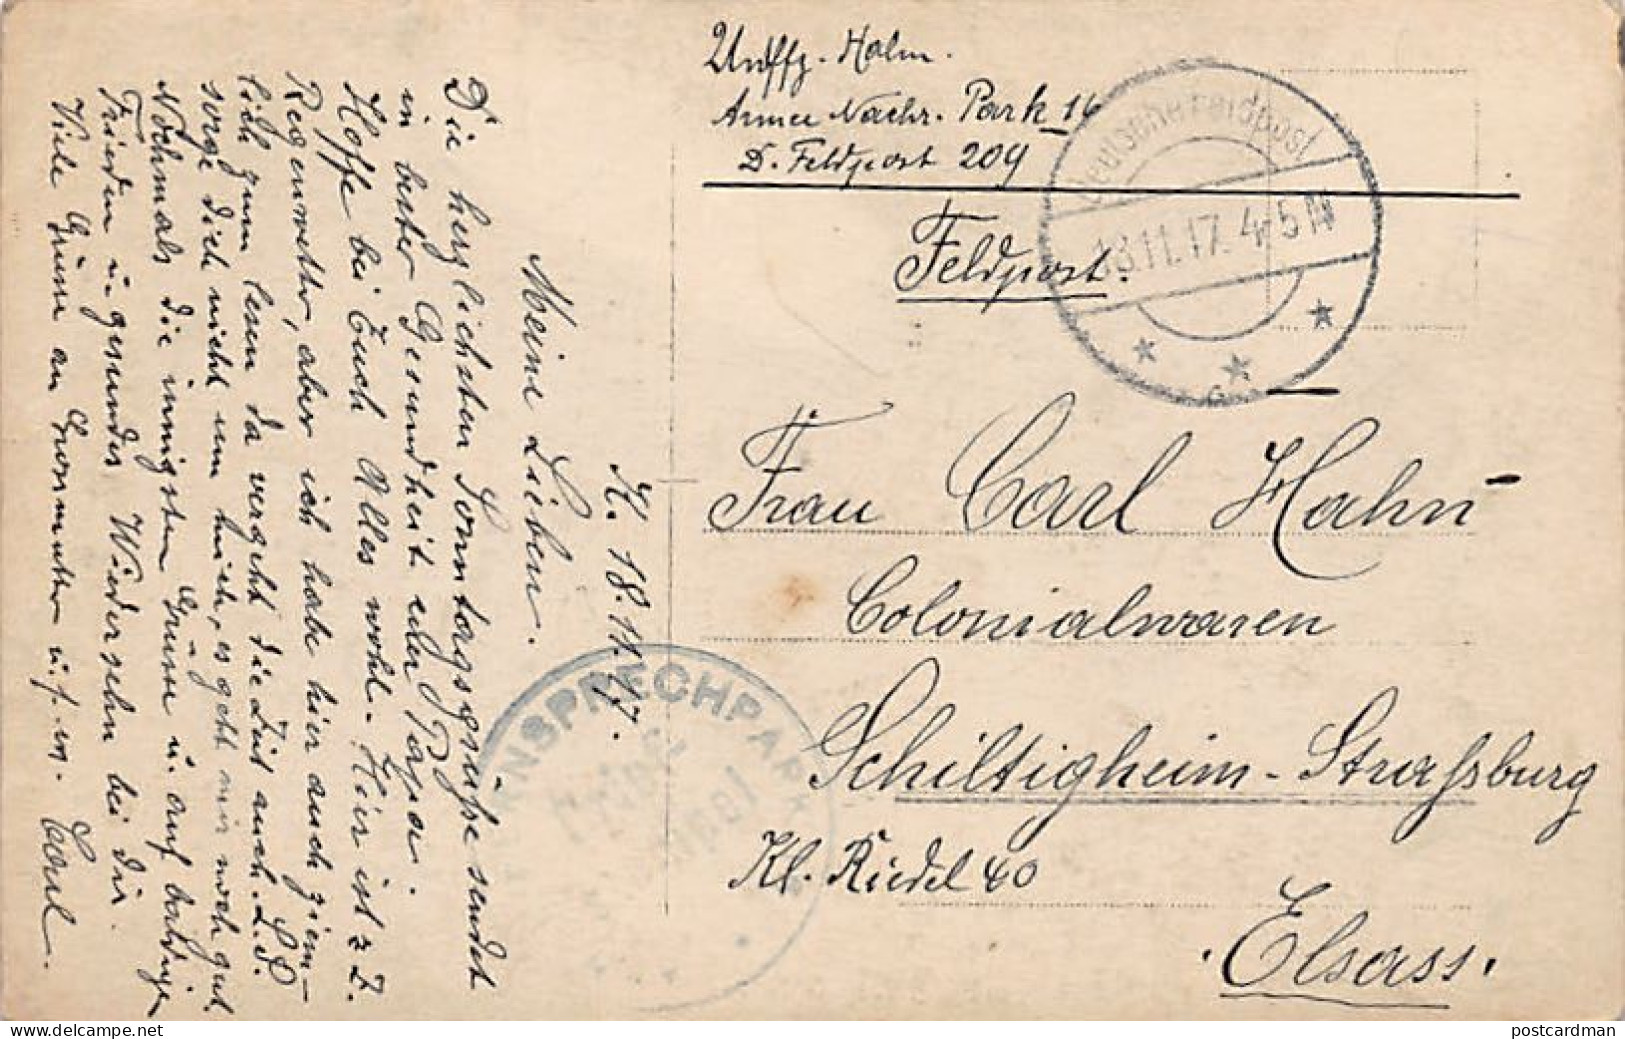 Unffz. Hahn.
Armee Nachr. Park 16
D. Feldpost 209
Feldpost.
Deutsche Feldpost
18.11.17. 4-5 N
Frau Carl Hahn
Colonialwaren
Schiltigheim-Straßburg
Kl. Riedel 40
Elsass.
FERNSPRECHPARK
18.11.17.
Meine Lieben.
Die herzlichsten Sonntagsgrüße sendet
in bester Gesundheit euer Papa.
Hoffe bei Euch Alles wohl. Hier ist z. Z.
Regenwetter, aber ich habe hier auch ziem-
lich zum lesen da vergeht die Zeit auch. L. S.
sorge dich nicht um mich, es geht mir noch gut.
Nochmals die innigsten Grüsse u. auf baldigen
Frieden u. gesundes Wiedersehn bei dir.
Viele Grüsse an Grossmutter u.s.w. Carl.
postcardman